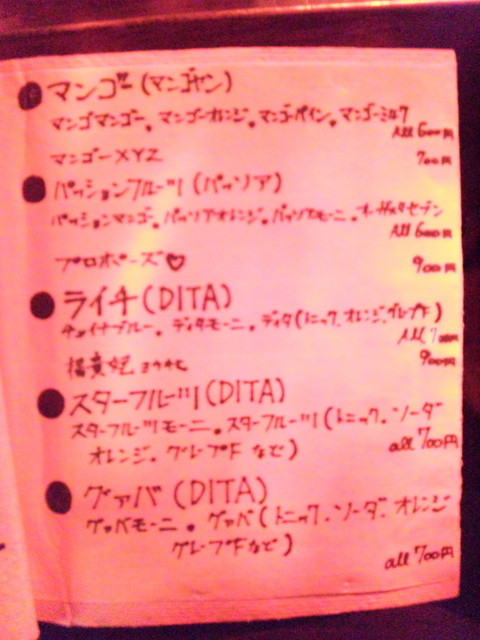 ● マンゴー (マンゴヤン)
マンゴマンゴー。マンゴーオレンジ。マンゴーパイン。マンゴーミルク
All 600円
マンゴーXYZ 700円
● パッションフルーツ (パッソア)
パッションマンゴー。パッソアオレンジ。パッソアモーニ。
All 600円
プロポーズ♡ 900円
● ライチ (DITA)
チャイナブルー。ディタモーニ。ディタ(トニック、オレンジ、グレープF)
All 700円
楊貴妃 ヨウキヒ 900円
● スターフルーツ (DITA)
スターフルーツモーニ。スターフルーツ(トニック、ソーダ
オレンジ。グレープF など) all 700円
● グァバ (DITA)
グァバモーニ。グァバ(トニック、ソーダ、オレンジ
グレープFなど)
all 700円